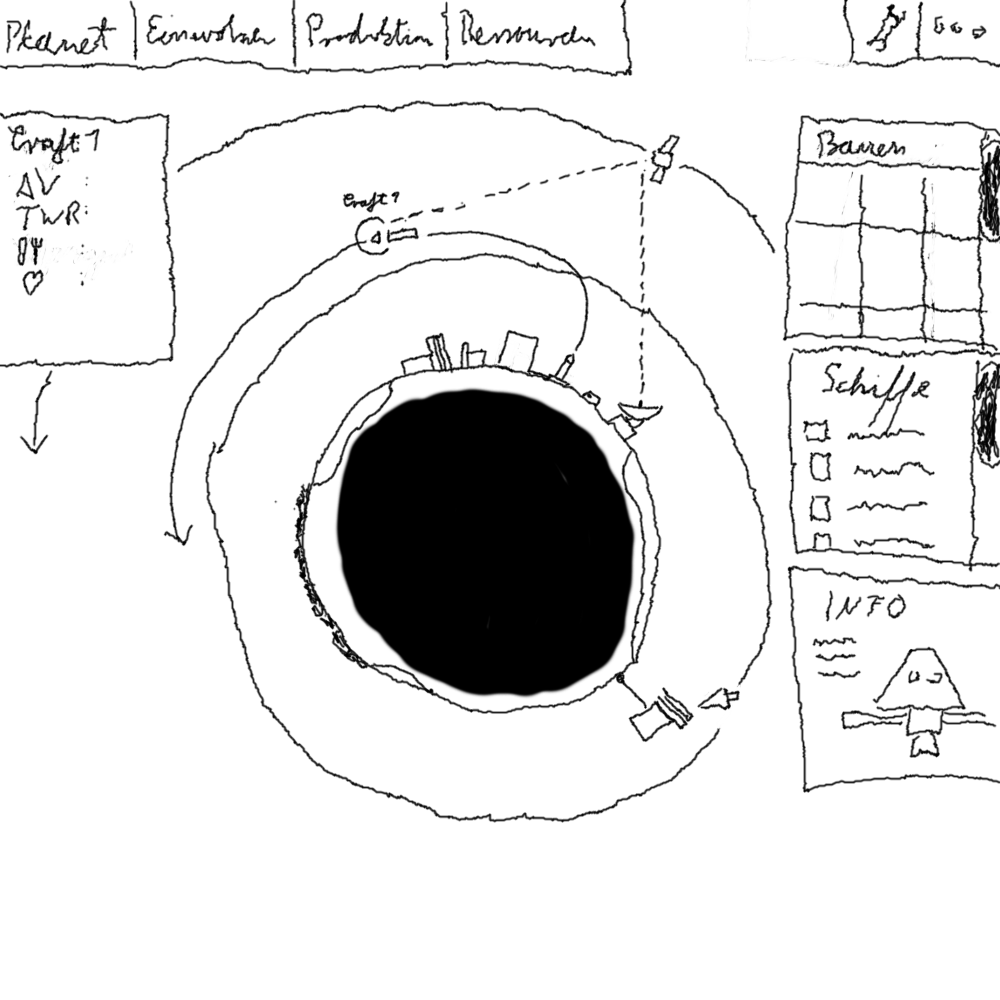 Planet
Einwohner
Produktion
Ressourcen
Craft 1
ΔV :
TWR:
:
Craft 1
Barren
Schiffe
INFO